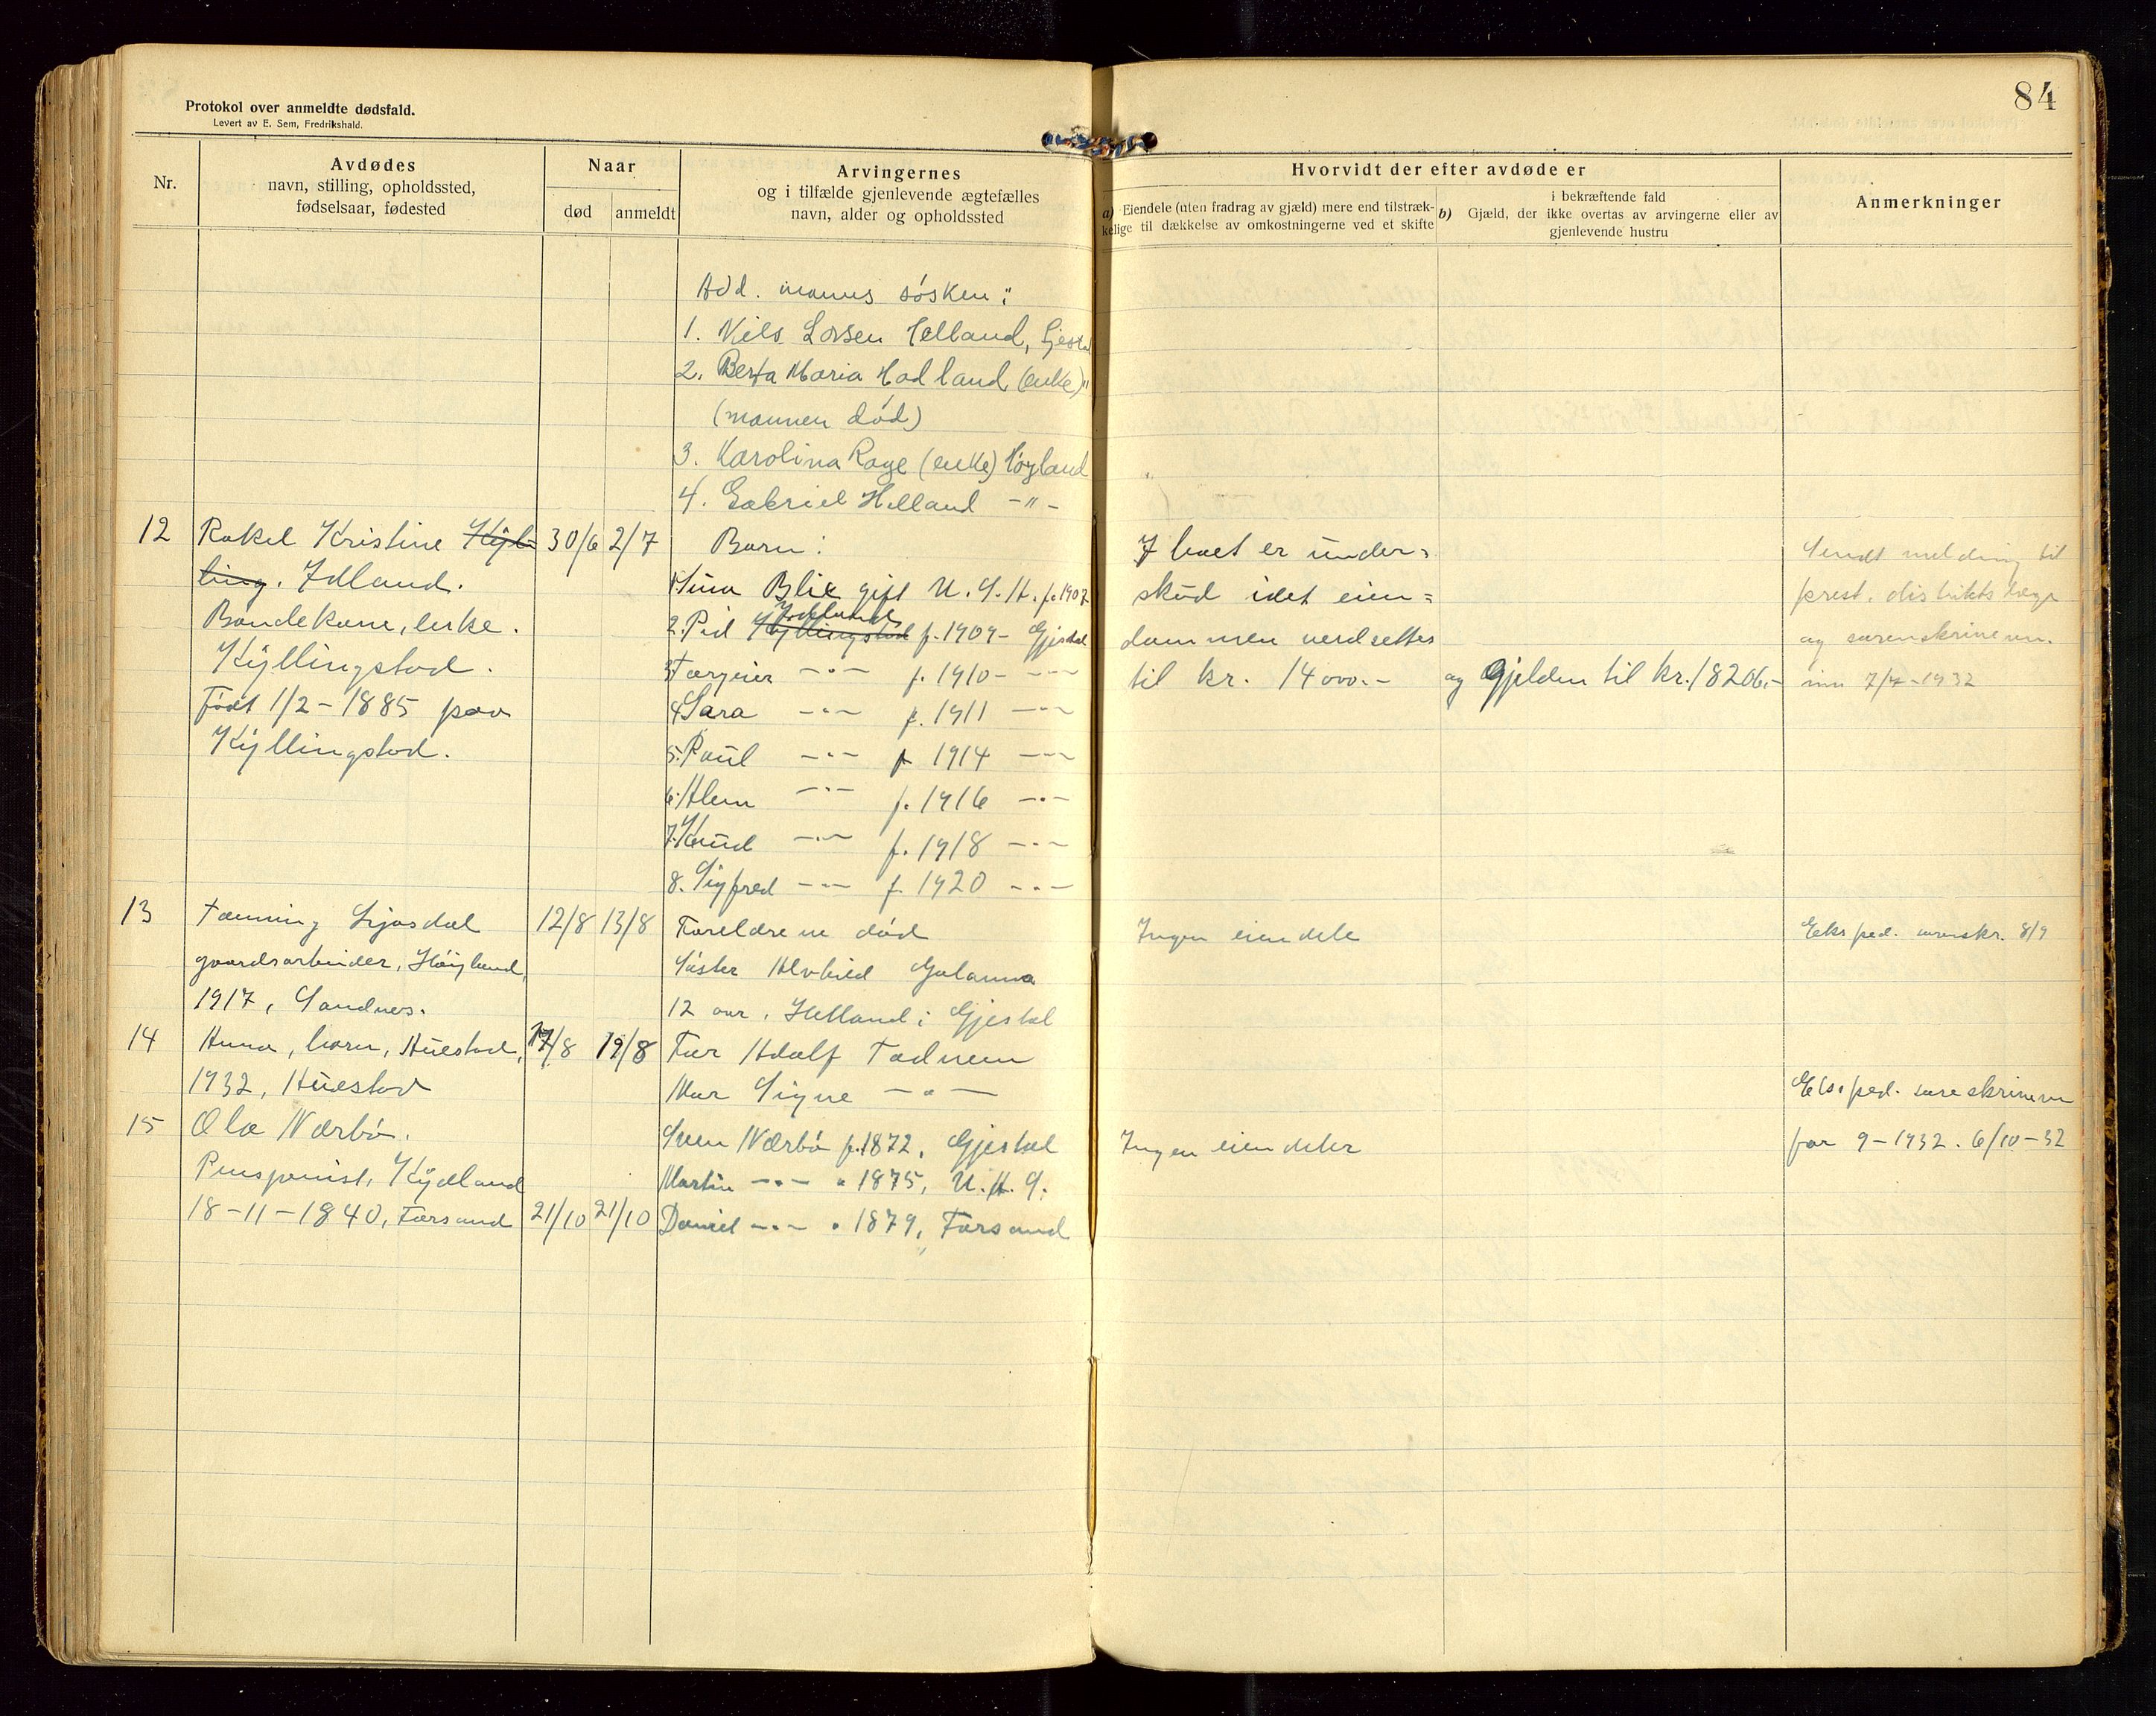 Protokol over anmeldte dødsfald.
Levert av E. Sem, Fredrikshald.
84
Nr.
Avdødes
navn, stilling, opholdssted,
fødselsaar, fødested
Naar
død
anmeldt
Arvingernes
og i tilfælde gjenlevende ægtefælles
navn, alder og opholdssted
Hvorvidt der efter avdøde er
a) Eiendele (uten fradrag av gjæld) mere end tilstræk-
kelige til dækkelse av omkostningerne ved et skifte
i bekræftende fald
b) Gjæld, der ikke overtas av arvingerne eller av
gjenlevende hustru
Anmerkninger
Avd. manns søsken:
1. Nils Larsen Helland, Gjestal
2. Berta Maria Hadland (enke) "
(mannen død)
3. Karolina Rage (enke) Høyland
4. Gabriel Helland -"-
12
Rakel Kristine Kyl-
ling. Idland.
Bondekone, enke.
Kyllingstad.
Født 1/2-1885 paa
Kyllingstad.
30/6 2/7
Barn:
1. Sina Blix gift U.S.A. f. 1907
Idland
2. Peil Kyllingstad f. 1909- Gjestal
3. Torgeir -"- f. 1910- -"-
4. Sara -"- f. 1911 -"-
5. Paul -"- f. 1914 -"-
6. Alem -"- f. 1916 -"-
7. Knud -"- f. 1918 -"-
8. Sigfred -"- f. 1920 -"-
I boet er under=
skud idet eien=
dommen verdsettes
til kr. 14000.-
og Gjelden til kr. 18206.-
Sendt melding til
prest. distriktslæge
og sorenskriveren.
7/7-1932
13
Tønning Ljosdal
gaardsarbeider, Høyland,
1917, Sandnes.
12/8 13/8
Foreldrene død
Søster Alvhild Jolanna
12 aar, Helland i Gjestal
Ingen eiendele
Eksped. sorenskr. 8/9
14
Anna, barn, Auestad,
1932, Auestad
17/8 19/8
Far Adolf Tadnem
Mor Signe -"-
15
Ola Nærbø.
Pensjonist, Kydland
18-11-1840, Forsand
21/10 21/10
Sven Nærbø f. 1872, Gjestal
Martin -"- " 1875, U.S.A.
Daniel -"- " 1879, Forsand
Ingen eiendeler
Eksped. sorenskriveren
for 9-1932. 6/10-32